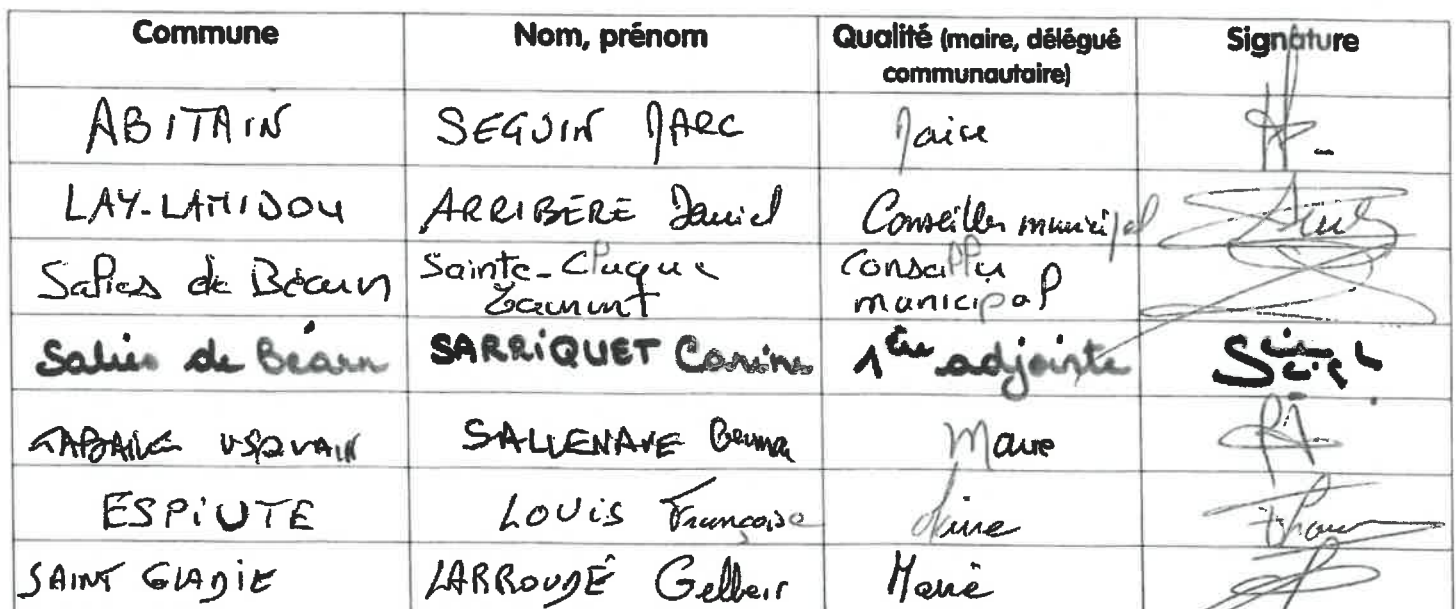 Commune Nom, prénom Qualité (maire, délégué communautaire) Signature
ABITAIN SEGUIN MARC Maire
LAY-LAMIDOU ARRIBERE Daniel Conseiller municipal
Salies de Béarn Sainte-Cluque Laurent Conseiller municipal
Salies de Béarn SARRiQUET Corinne 1ère adjointe
TABAILLE USQUAIN SALLENAVE Maire
ESPiUTE LOUiS Françoise Maire
SAINT GLADIE LARROUDÉ Gilbert Maire